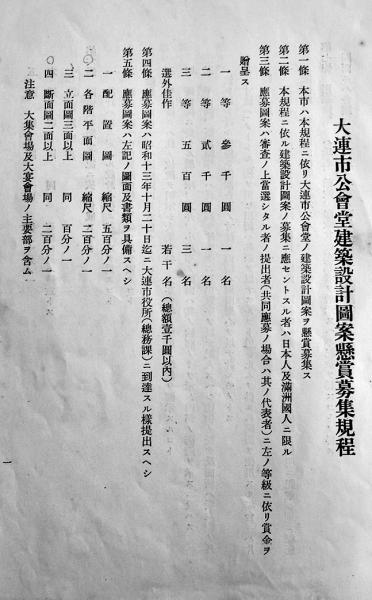 大連市公會堂建築設計圖案懸賞募集規程
第一條 本市ハ本規程ニ依リ大連市公會堂ノ建築設計圖案ヲ懸賞募集ス
第二條 本規程ニ依ル建築設計圖案ノ募集ニ應セントスル者ハ日本人及滿洲國人ニ限ル
第三條 應募圖案ハ審査ノ上當選シタル者ノ提出者(共同應募ノ場合ハ其ノ代表者)ニ左ノ等級ニ依リ賞金ヲ
贈呈ス
一等 參千圓 一名
二等 貳千圓 一名
三等 五百圓 三名
選外佳作 若干名(總額壹千圓以內)
第四條 應募圖案ハ昭和十三年十月二十日迄ニ大連市役所(總務課)ニ到達スル樣提出スヘシ
第五條 應募圖案ハ左記ノ圖面及書類ヲ具備スヘシ
一 配置圖 縮尺 五百分ノ一
二 各階平面圖 縮尺 二百分ノ一
三 立面圖三面以上 同 百分ノ一
四 斷面圖二面以上 同 二百分ノ一
注意 大集會場及大宴會場ノ主要部ヲ含ム
一